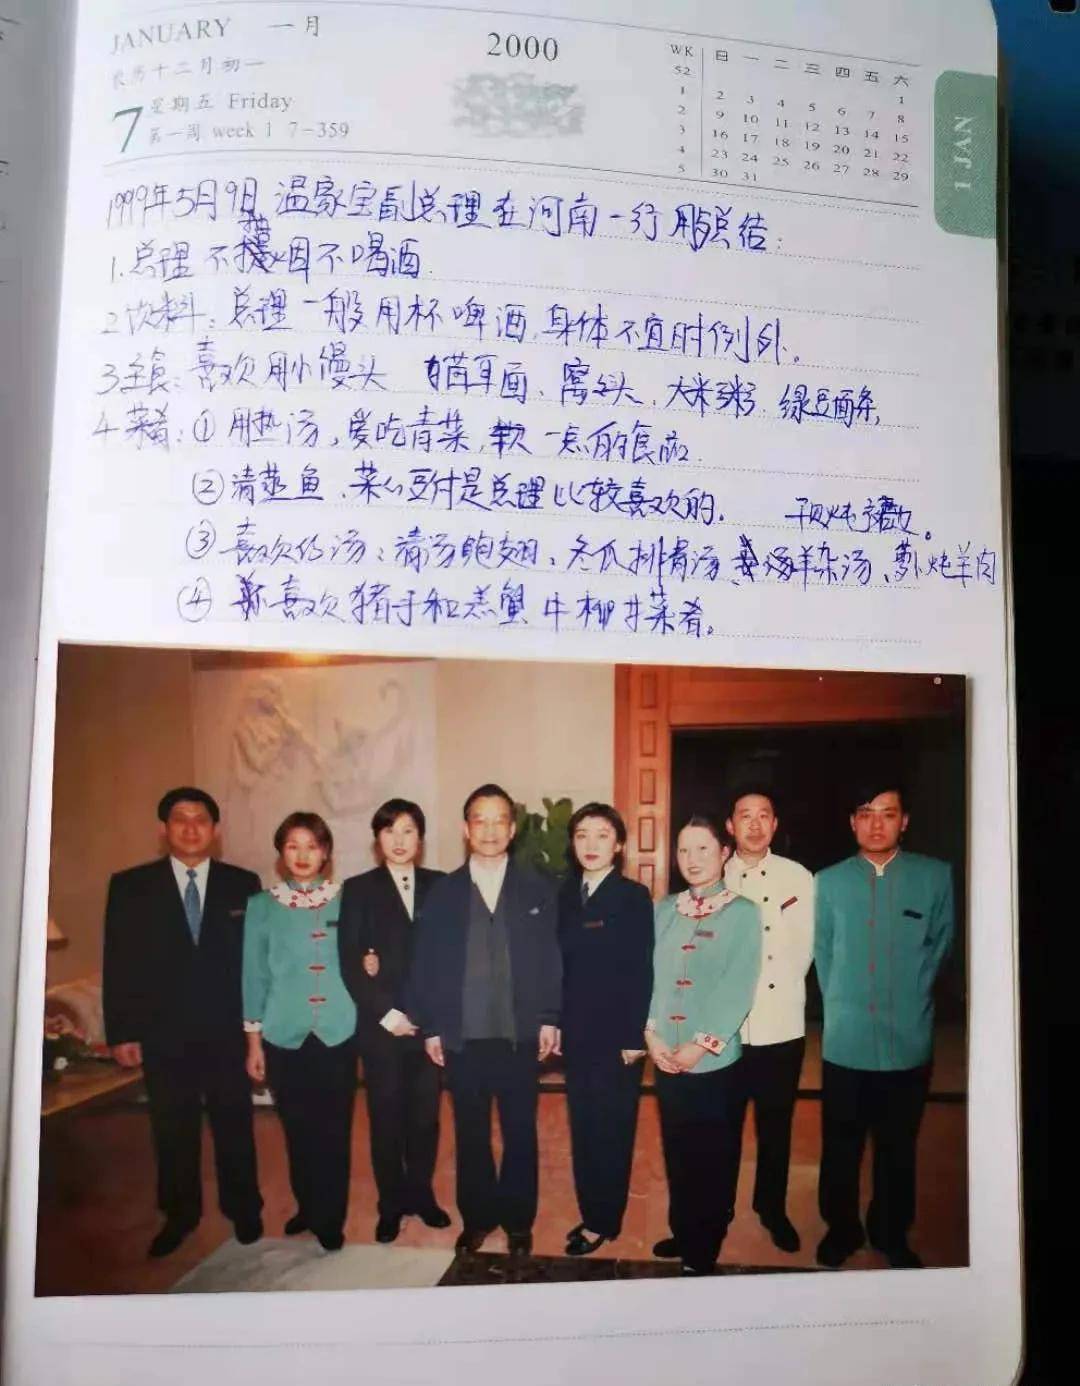 JANUARY 一月
2000
农历十二月初一
7 星期五 Friday
第一周 week 1 7-359
WK 日 一 二 三 四 五 六
52 1
1 2 3 4 5 6 7 8
2 9 10 11 12 13 14 15
3 16 17 18 19 20 21 22
4 23 24 25 26 27 28 29
5 30 31
1 JAN
1999年5月9日 温家宝副总理在河南一行用总结:
1.总理不抽烟不喝酒.
2饮料:总理一般用杯啤酒,身体不宜时例外。
3主食:喜欢用小馒头 猫耳面、窝头、大米粥、绿豆面条,
4菜肴:①用热汤,爱吃青菜,软一点的食品.
②清蒸鱼、菜心豆付是总理比较喜欢的。
③喜欢的汤:清汤鲍翅、冬瓜排骨汤、羊杂汤、萝卜炖羊肉
④ 喜欢猪手和蒸蟹 牛柳 菜肴。